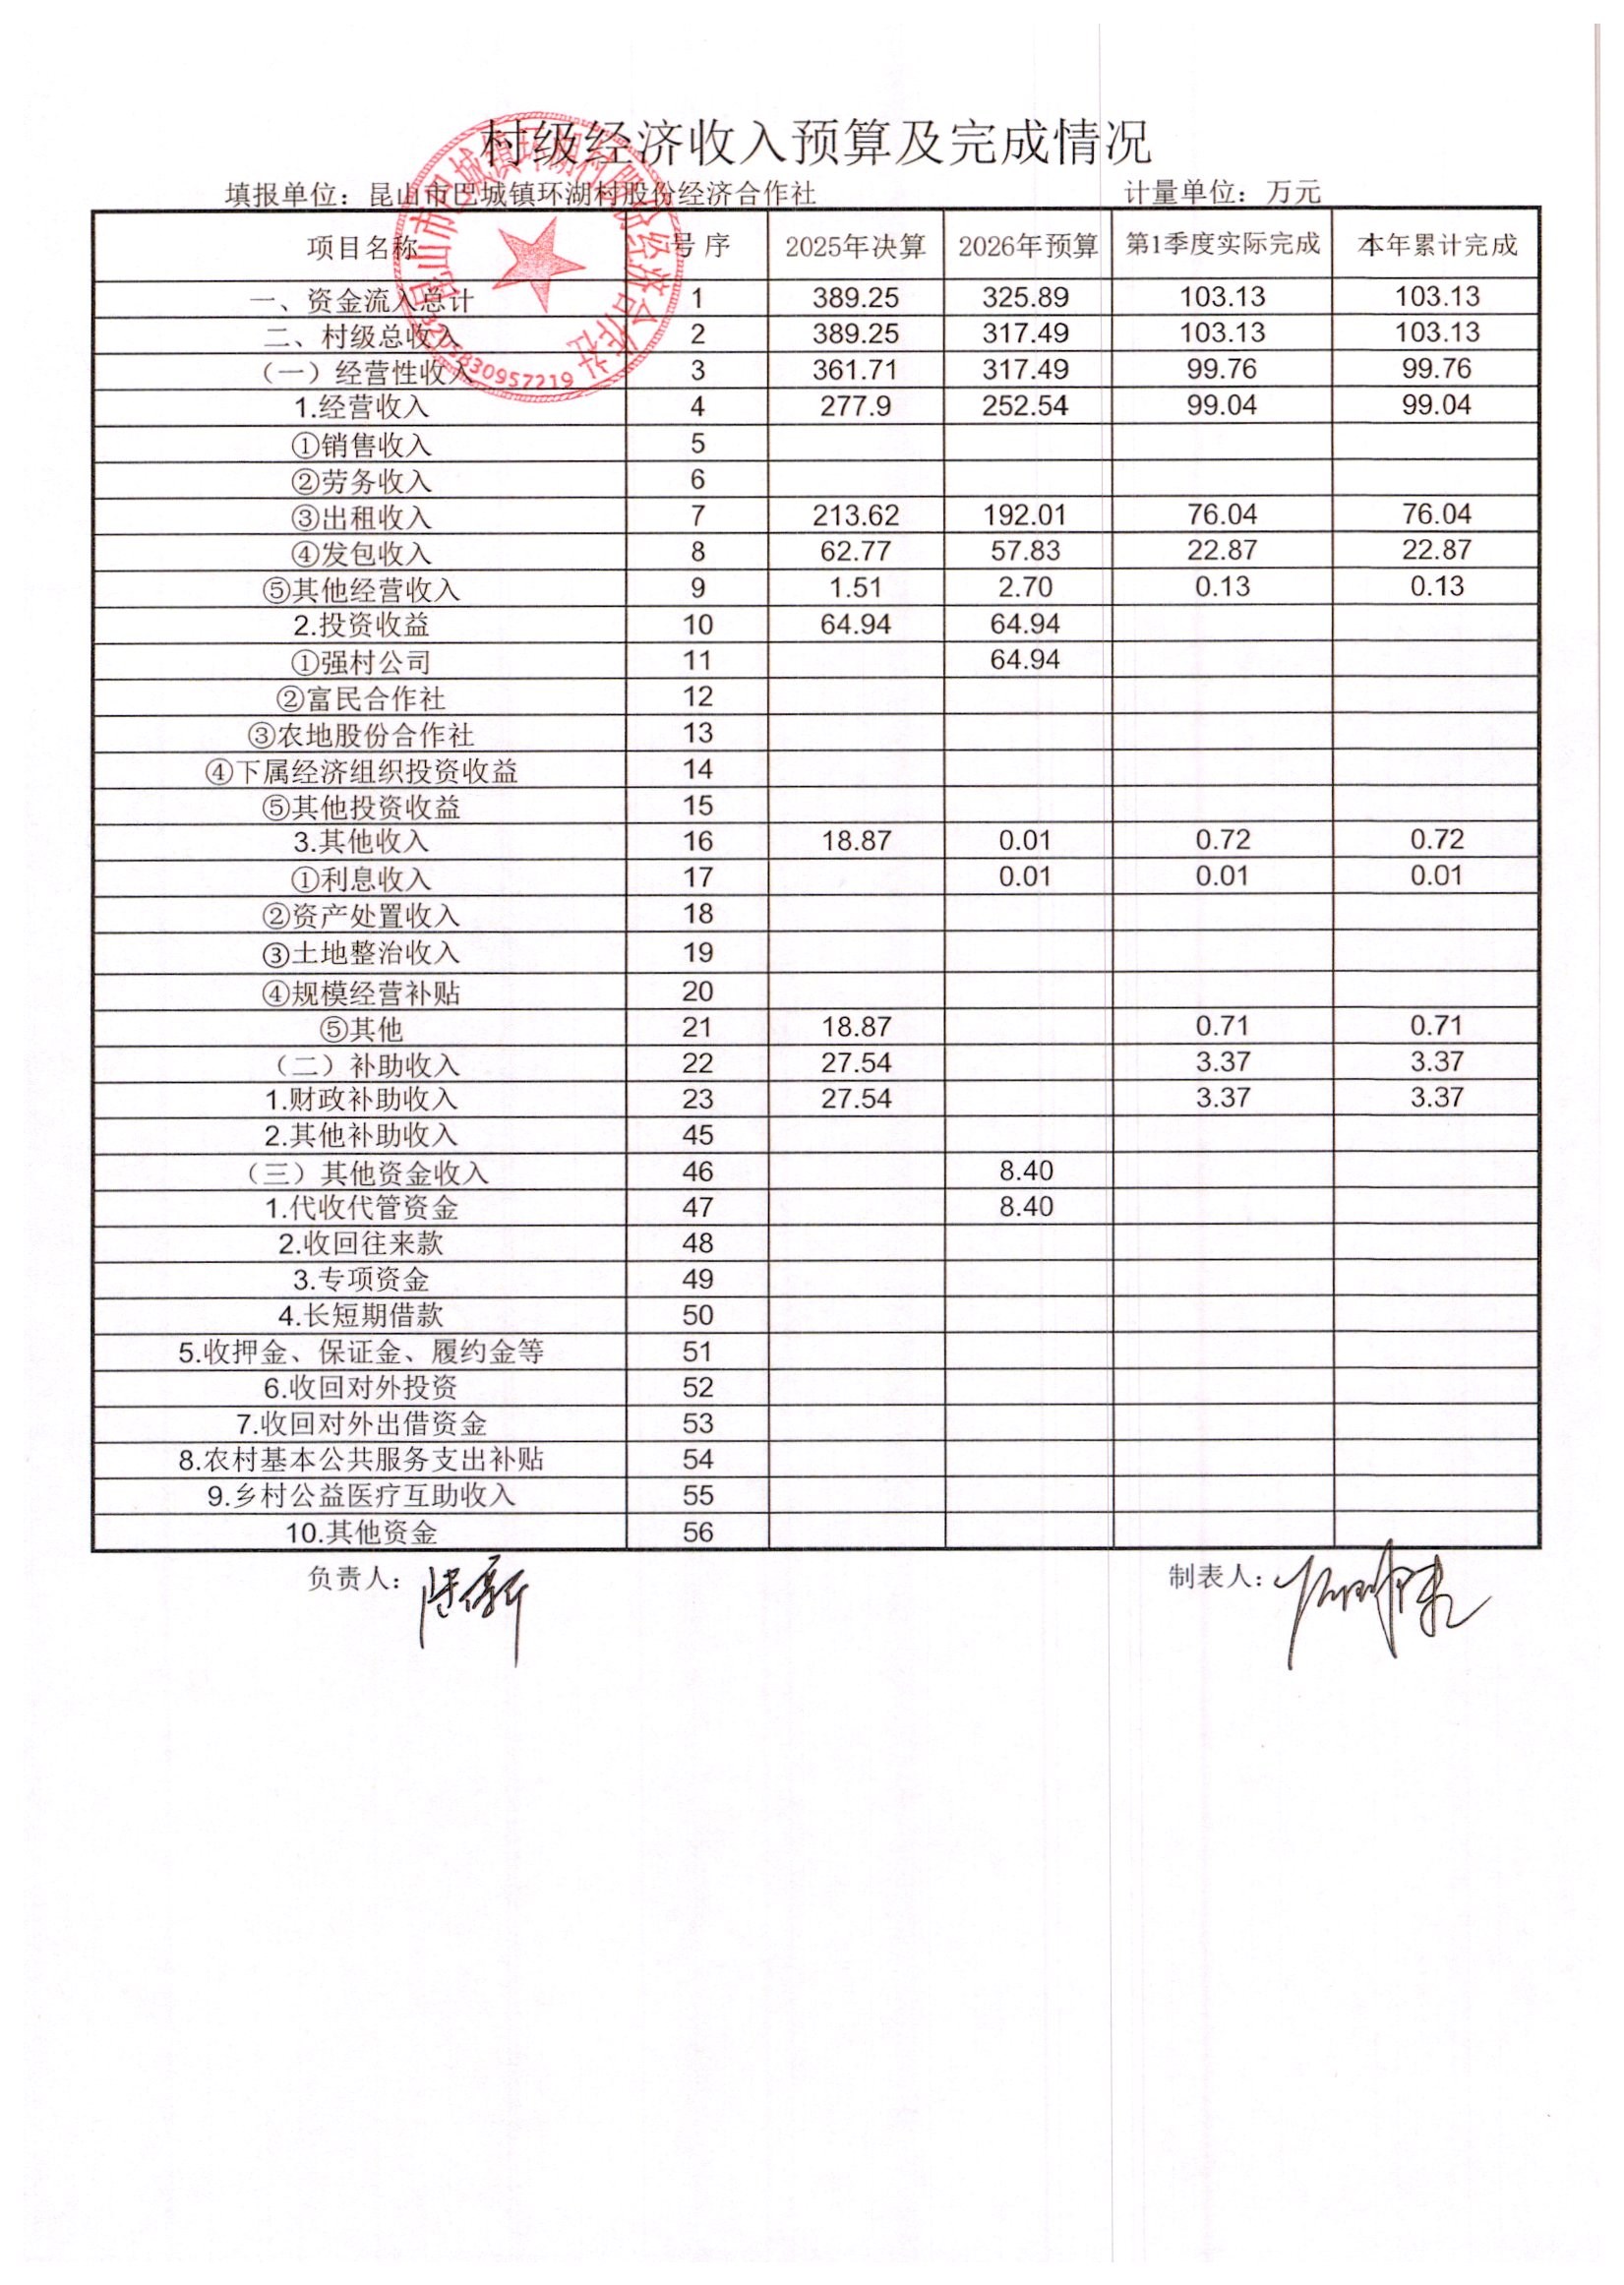 村级经济收入预算及完成情况
填报单位：昆山市巴城镇环湖村股份经济合作社 计量单位：万元
项目名称 号序 2025年决算 2026年预算 第1季度实际完成 本年累计完成
一、资金流入总计 1 389.25 325.89 103.13 103.13
二、村级总收入 2 389.25 317.49 103.13 103.13
（一）经营性收入 3 361.71 317.49 99.76 99.76
1.经营收入 4 277.9 252.54 99.04 99.04
①销售收入 5
②劳务收入 6
③出租收入 7 213.62 192.01 76.04 76.04
④发包收入 8 62.77 57.83 22.87 22.87
⑤其他经营收入 9 1.51 2.70 0.13 0.13
2.投资收益 10 64.94 64.94
①强村公司 11 64.94
②富民合作社 12
③农地股份合作社 13
④下属经济组织投资收益 14
⑤其他投资收益 15
3.其他收入 16 18.87 0.01 0.72 0.72
①利息收入 17 0.01 0.01 0.01
②资产处置收入 18
③土地整治收入 19
④规模经营补贴 20
⑤其他 21 18.87 0.71 0.71
（二）补助收入 22 27.54 3.37 3.37
1.财政补助收入 23 27.54 3.37 3.37
2.其他补助收入 45
（三）其他资金收入 46 8.40
1.代收代管资金 47 8.40
2.收回往来款 48
3.专项资金 49
4.长短期借款 50
5.收押金、保证金、履约金等 51
6.收回对外投资 52
7.收回对外出借资金 53
8.农村基本公共服务支出补贴 54
9.乡村公益医疗互助收入 55
10.其他资金 56
负责人： 制表人：
昆山市巴城镇环湖村股份经济合作社
3205830957219